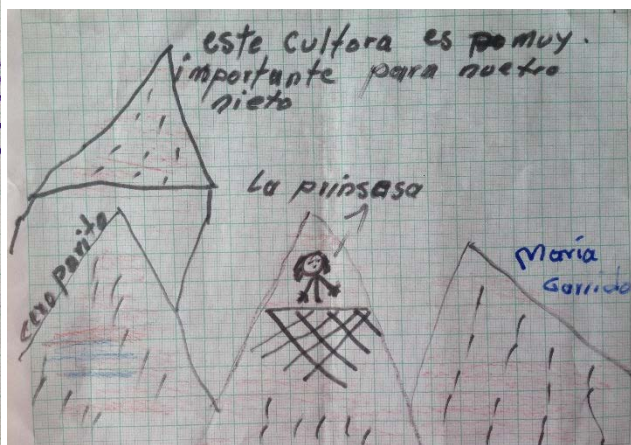 este cultora es muy.
importante para nuetro
nieto
La prinsasa
cero parita
María
Garrido